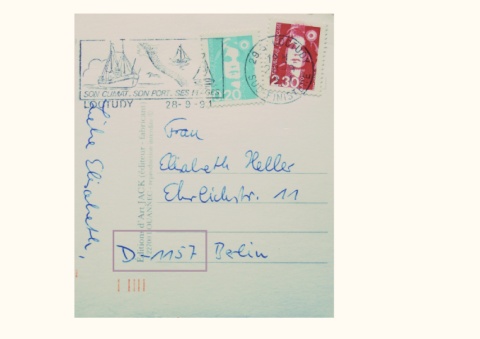 SON CLIMAT. SON PORT. SES ILES
LOCTUDY 28-9-91
20
2.30
Liebe Elisabeth,
Frau
Elisabeth Heller
Ehrlichstr. 11
D-1157 Berlin
Editions d'Art JACK